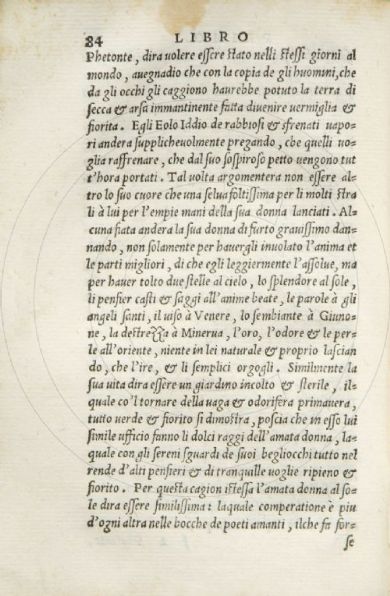 84 LIBRO
Phetonte, dira uolere essere stato nelli stessi giorni al
mondo, auegnadio che con la copia de gli huomini, che
da gli occhi gli caggiono haurebbe potuto la terra di
secca & arsa immantinente fatta diuenire uermiglia &
fiorita. Egli Eolo Iddio de rabbiosi & sfrenati uapo-
ri andera supplicheuolmente pregando, che quelli uo-
glia raffrenare, che dal suo sospiroso petto uengono tut
t'hora portati. Tal uolta argomentera non essere al-
tro lo suo cuore che una selua foltissima per li molti stra
li à lui per l'empie mani della sua donna lanciati. Al-
cuna fiata andera la sua donna di furto grauissimo dan-
nando, non solamente per hauergli inuolato l'anima et
le parti migliori, di che egli leggiermente l'assolue, ma
per hauer tolto due stelle al cielo, lo splendore al sole,
li pensier casti & saggi all'anime beate, le parole à gli
angeli santi, il uiso à Venere, lo sembiante à Giuno-
ne, la destrezza à Minerua, l'oro, l'odore & le per-
le all'oriente, niente in lei naturale & proprio lascian
do, che l'ire, & li semplici orgogli. Similmente la
sua uita dira essere un giardino incolto & sterile, il-
quale co'l tornare della uaga & odorifera primauera,
tutto uerde & fiorito si dimostra, poscia che in esso lui
simile ufficio fanno li dolci raggi dell'amata donna, la-
quale con gli sereni sguardi de suoi begliocchi tutto nel
rende d'alti pensieri & di tranquille uoglie ripieno &
fiorito. Per questa cagion istessa l'amata donna al so-
le dira essere similissima: laquale comperatione è piu
d'ogni altra nelle bocche de poeti amanti, ilche fa for-
se